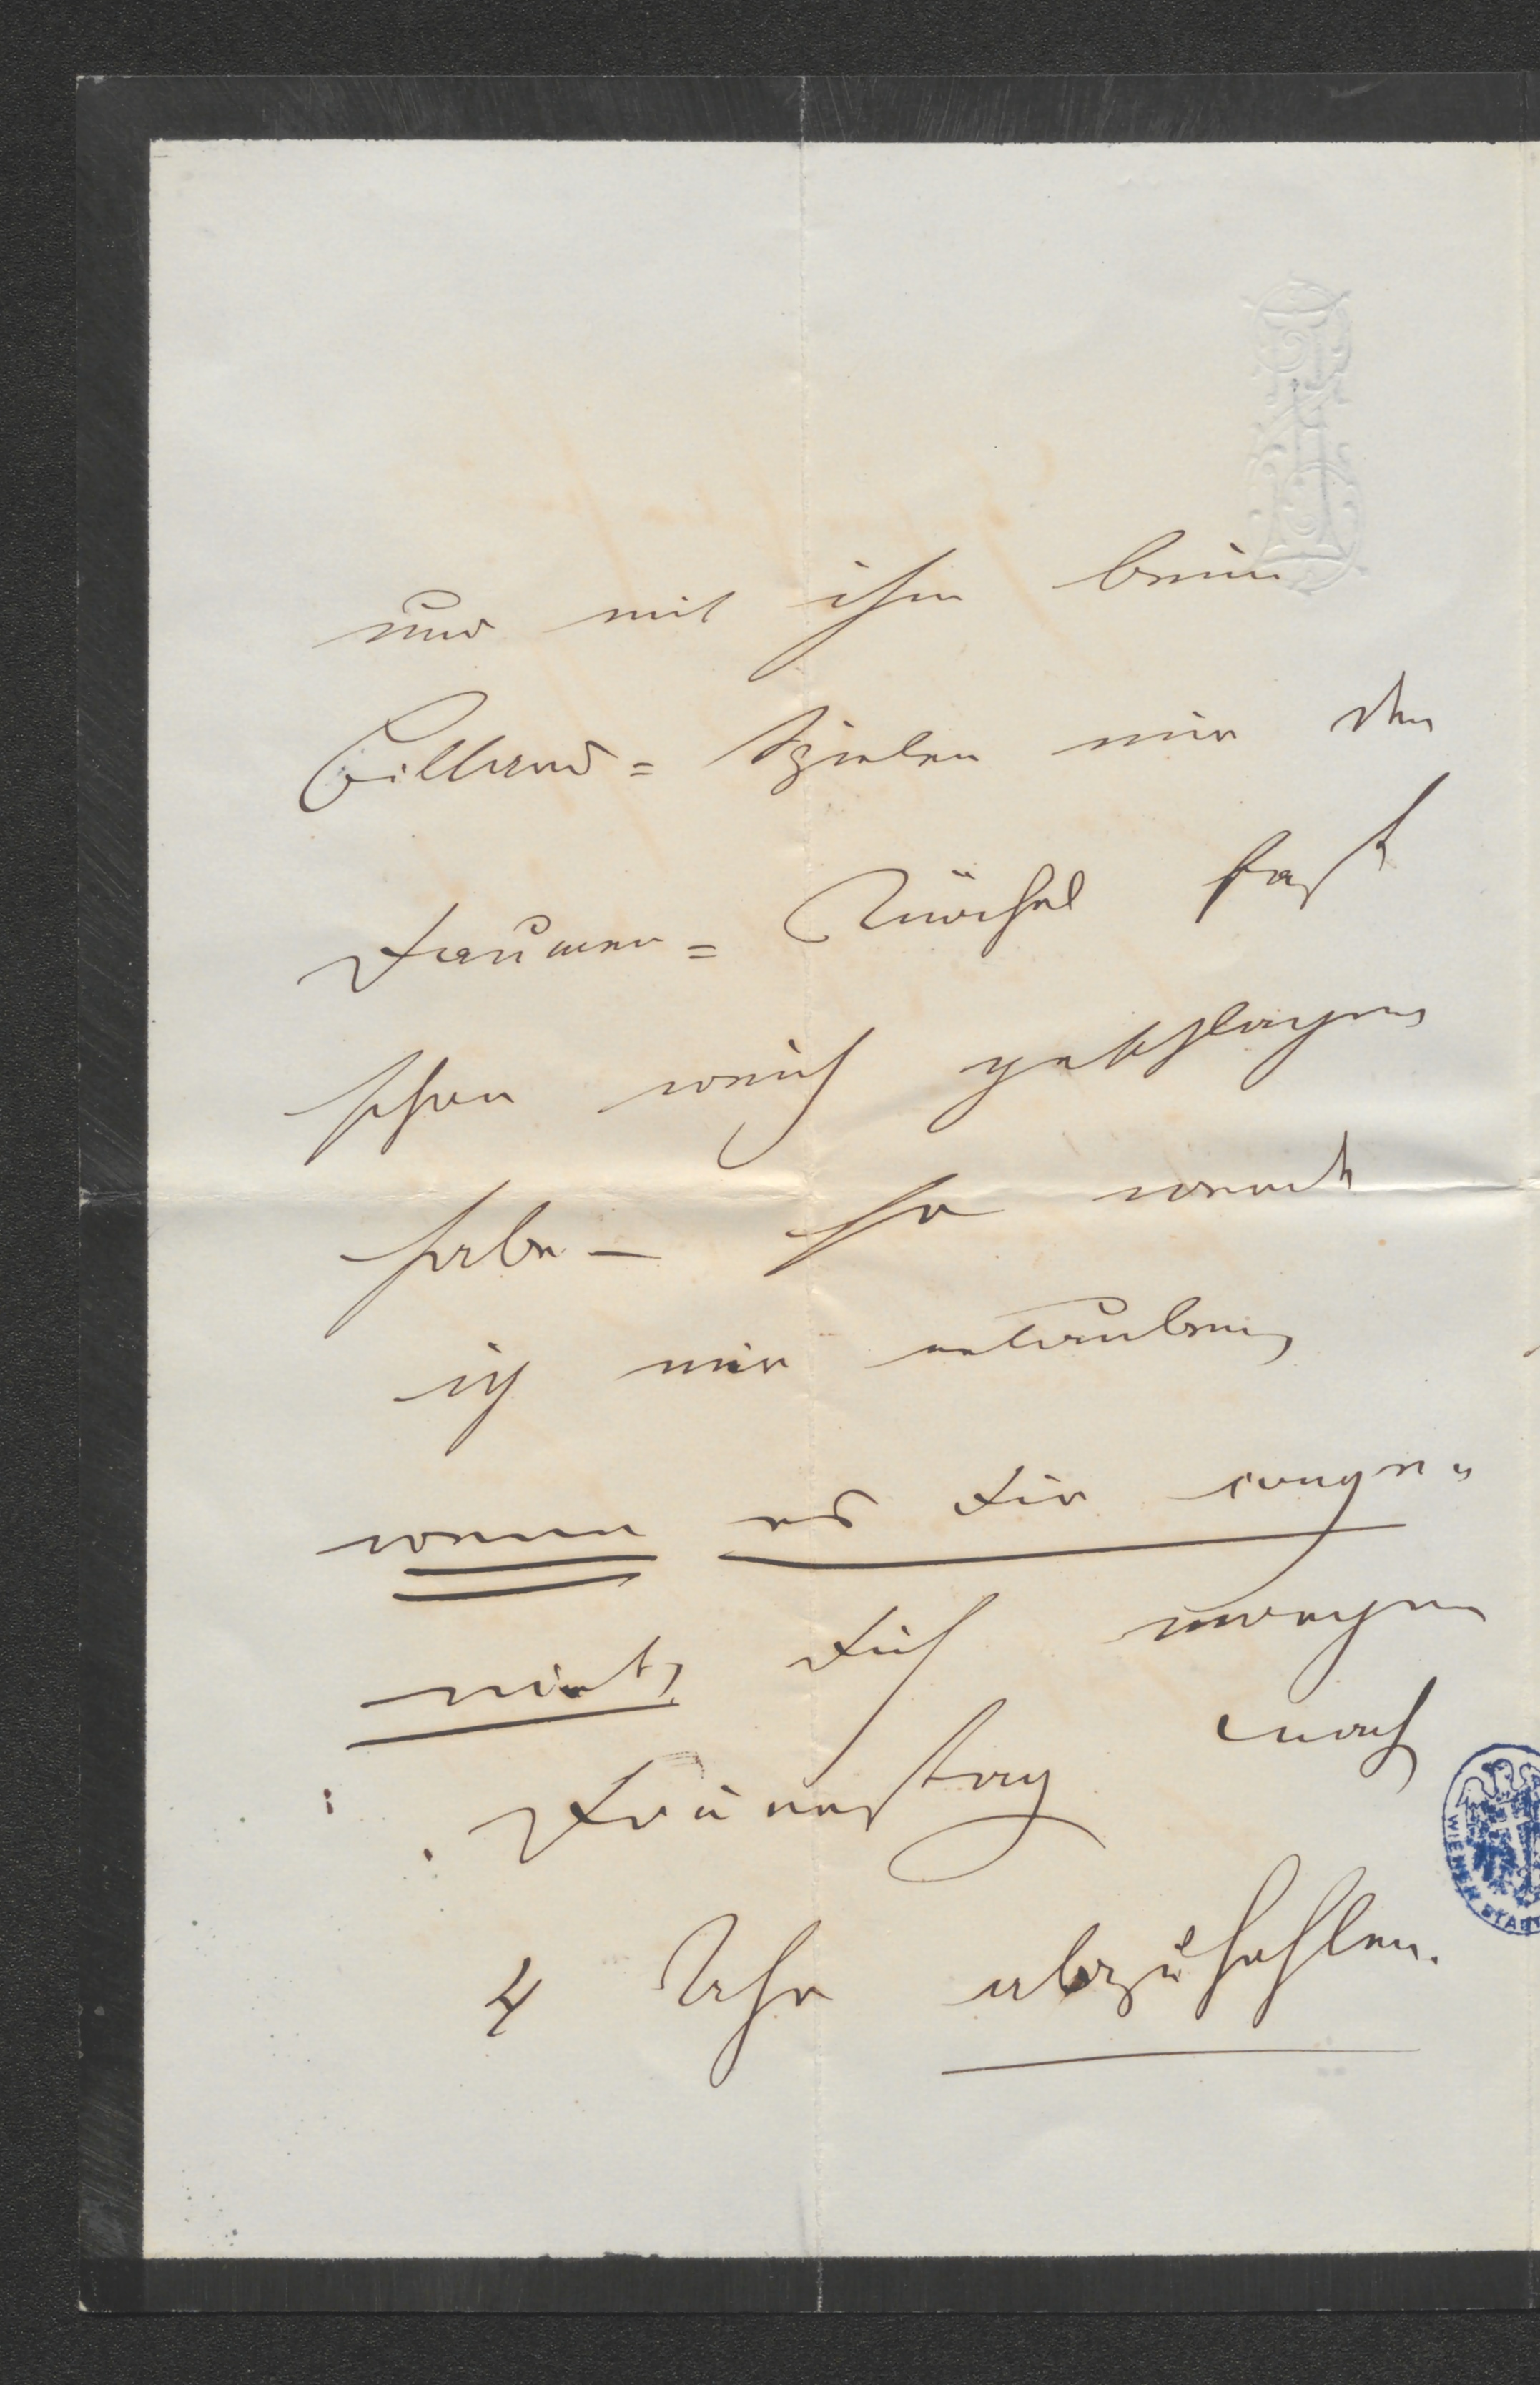 und mit ihm beim
Billard= Spielen mir den
Daumen= Knöchel fast
schon weich geschlagen
habe — so werde
ich mir erlauben,
wenn es Dir conve=
nirt, Dich morgen
Donnerstag nach
4 Uhr abzuhohlen.
WIENER STADT